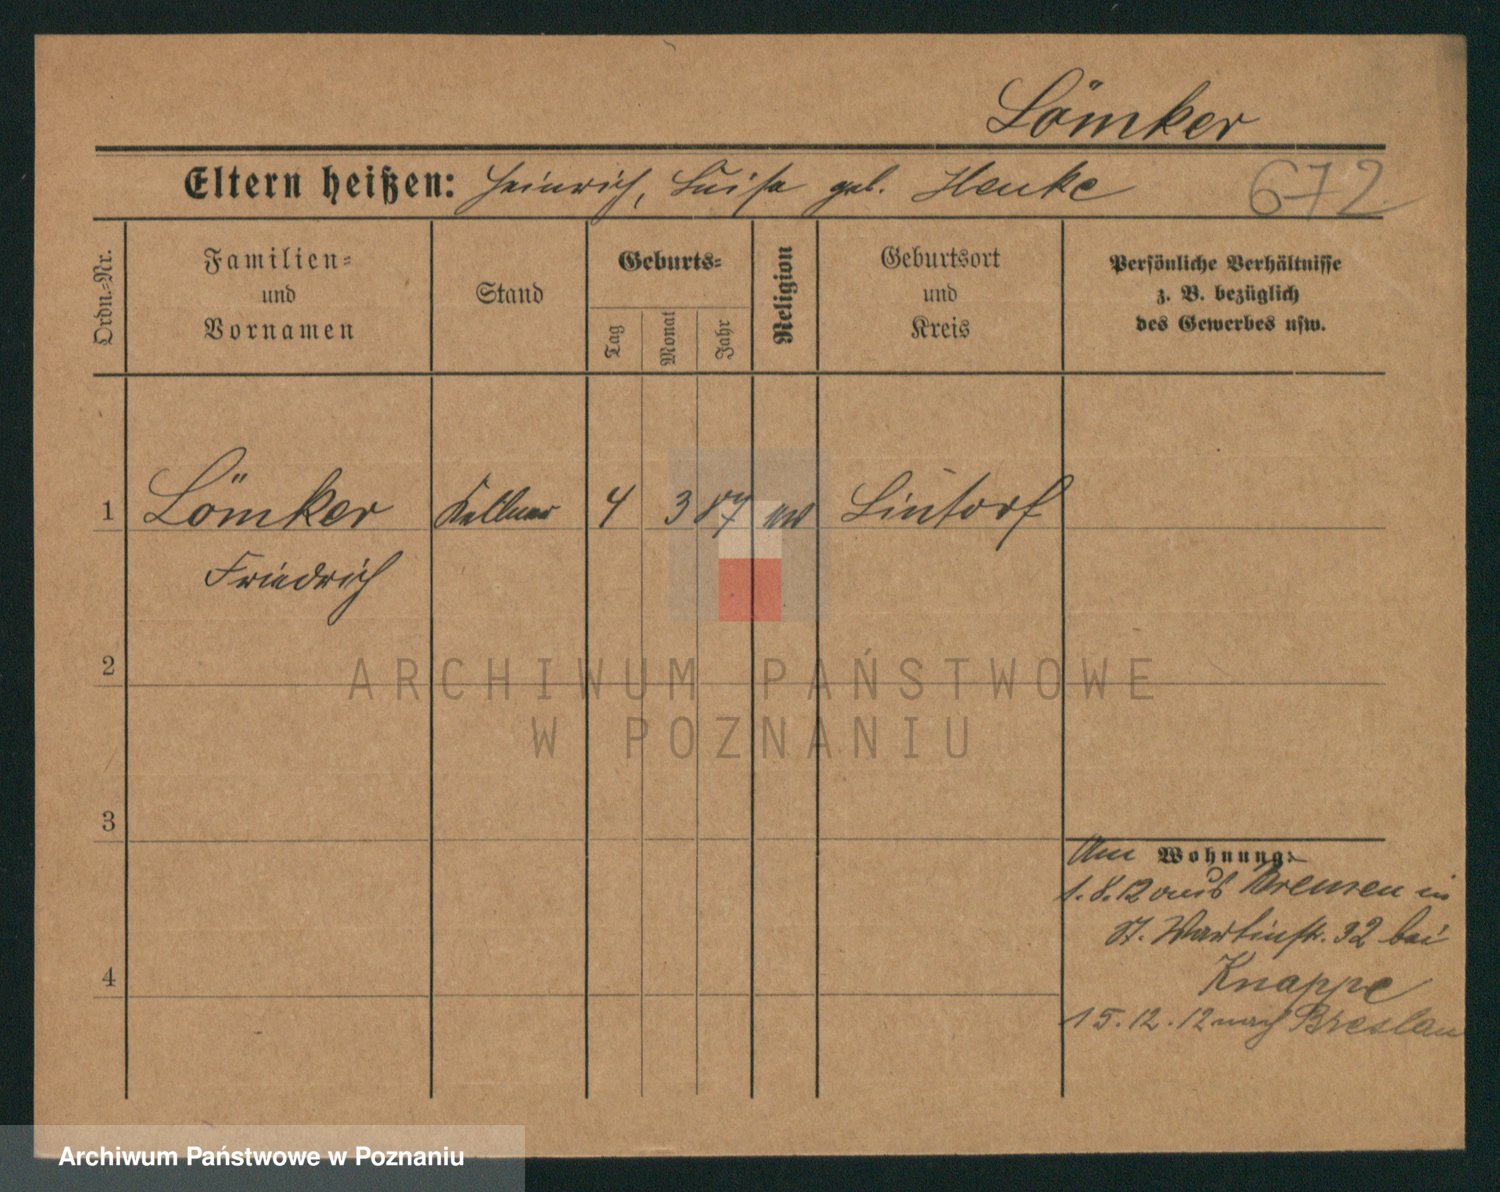 Lömker
Eltern heißen: Heinrich, Luise geb. Henke
672
Ordn.-Nr.
Familien- und Vornamen
Stand
Geburts-
Tag
Monat
Jahr
Religion
Geburtsort und Kreis
Persönliche Verhältnisse
z. B. bezüglich
des Gewerbes usw.
1 Lömker Kellner 4 3 87 ev Lintorf
Friedrich
2
3
4
Am Wohnung:
1.8.12 aus Bremen in
St. Martinstr. 32 bei
Knappe
15.12.12 nach Breslau
ARCHIWUM PAŃSTWOWE
W POZNANIU
Archiwum Państwowe w Poznaniu